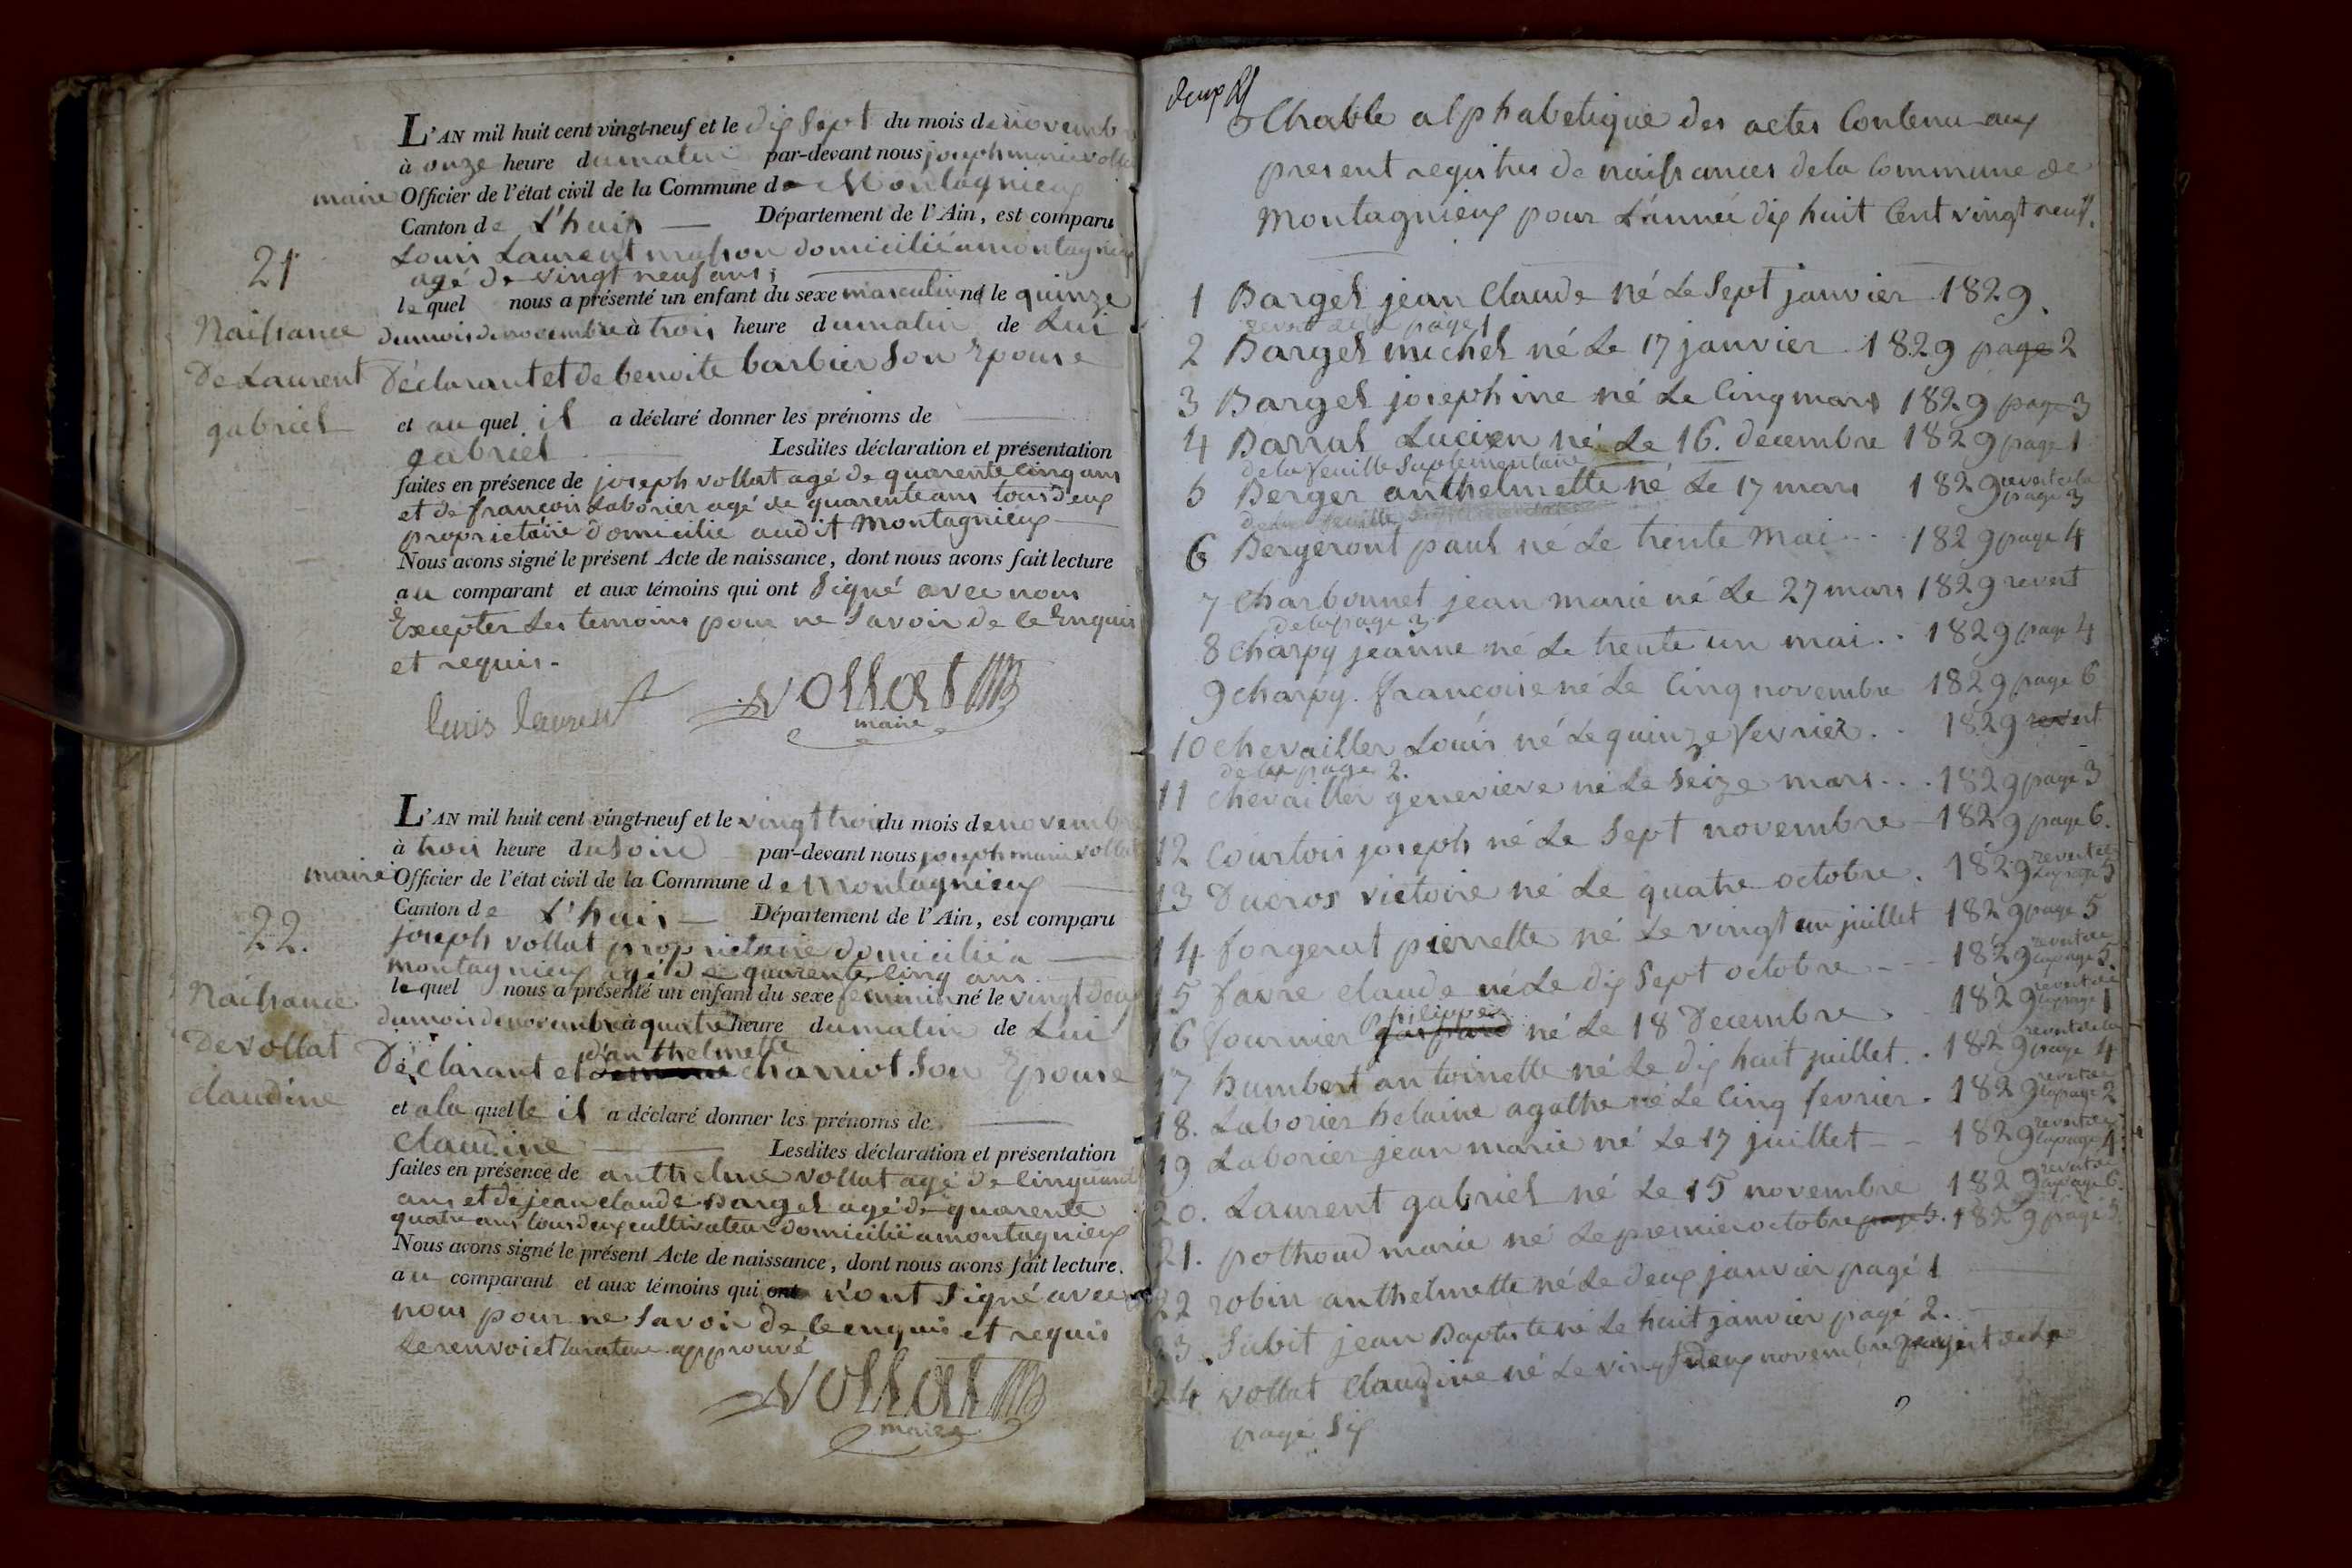 L'AN mil huit cent vingt-neuf et le dix Sept du mois de novembre
à onze heure dumatin par-devant nous joseph marie vollat
maire Officier de l'état civil de la Commune de Montagnieux
Canton de L'huis — Département de l'Ain, est comparu
Louis Laurent masson domicilié a montagnieux
agé de vingt neuf ans,
le quel nous a présenté un enfant du sexe masculin né le quinze
dumois denovembre à trois heure dumatin de Lui
Déclarant et de benoite barbier Son Epouse
et au quel il a déclaré donner les prénoms de
gabriel Lesdites déclaration et présentation
faites en présence de joseph vollat agé de quarente cinq ans
et de françois Laborier agé de quarente ans tous deux
proprietaire domicilié audit Montagnieux
Nous avons signé le présent Acte de naissance, dont nous avons fait lecture
au comparant et aux témoins qui ont Signé avec nous
Excepter Les temoins pour ne Savoir de ce Enquis
et requis.
louis laurent vollat
maire
21
Naissance
De Laurent
gabriel
L'AN mil huit cent vingt-neuf et le vingt trois du mois de novembre
à trois heure du Soire par-devant nous joseph marie vollat
maire Officier de l'état civil de la Commune de Montagnieux
Canton de L'huis — Département de l'Ain, est comparu
joseph vollat proprietaire domicilié a
montagnieux agé de quarente cinq ans
le quel nous a présenté un enfant du sexe feminin né le vingt deux
dumois denovembre à quatre heure dumatin de Lui
d'anthelmette
Déclarant et charriot Son Epouse
et a la quelle il a déclaré donner les prénoms de
Claudine Lesdites déclaration et présentation
faites en présence de anthelme vollat agé de cinquante
ans et de jean claude Bargel agé de quarente
quatre ans tous deux cultivateur domicilié a montagnieux
Nous avons signé le présent Acte de naissance, dont nous avons fait lecture.
au comparant et aux témoins qui ont n'ont Signé avec
nous pour ne Savoir de ce enquis et requis
Le renvoi et la rature approuvé
vollat
maire
22.
Naissance
De vollat
claudine
Thable alphabetique des actes Contenu aux
present registres de naissances de la Commune de
Montagnieux pour L'année dix huit Cent vingt neuf.
1 Bargel jean Claude né Le Sept janvier 1829.
revert de la page 1
2 Bargel michel né Le 17 janvier 1829 page 2
3 Bargel josephine né Le Cinq mars 1829 page 3
4 Barral Lucien né Le 16. decembre 1829 page 1
de la feuille Suplementaire
5 Berger anthelmette né Le 17 mars 1829 revert de la page 3
6 Bergeront paul né Le trente Mai 1829 page 4
7 Charbonnet jean marie né Le 27 mars 1829 revert
de la page 3
8 Charpy jeanne né Le trente un mai . . 1829 page 4
9 charpy. francoise né Le Cinq novembre 1829 page 6
10 chevailler Louis né Le quinze fevrier . . 1829 revert
de la page 2.
11 chevailler genevieve né Le Seize mars . . . 1829 page 3
12 Courtois joseph né Le Sept novembre 1829 page 6.
13 Ducros victoire né Le quatre octobre . 1829 revert de la page 5
14 forgerat pierrette né Le vingt un juillet 1829 page 5
15 favre claude né Le dix Sept octobre - - - 1829 revert de la page 5.
philippe
16 fournier gaspard né Le 18 Decembre 1829 revert de la page 1
17 humbert antoinette né Le dix huit juillet . . 1829 revert de la page 4
18. Laborier helaine agathe né Le Cinq fevrier . 1829 revert de la page 2
19 Laborier jean marie né Le 17 juillet - - 1829 revert de la page 4.
20. Laurent gabriel né Le 15 novembre 1829 revert de la page 6.
21. pothoud marie né Le premier octobre page 5. 1829 page 5.
22 robin anthelmette né Le deux janvier page 1
23. Subit jean Baptiste né Le huit janvier page 2.
24 vollat Claudine né Le vingt deux novembre revert de la
page Six